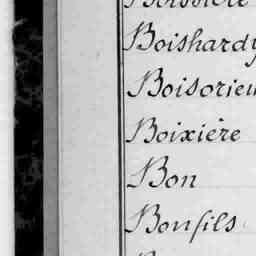 Boissière
Boishardy
Boisorieu
Boixière
Bon
Bonfils